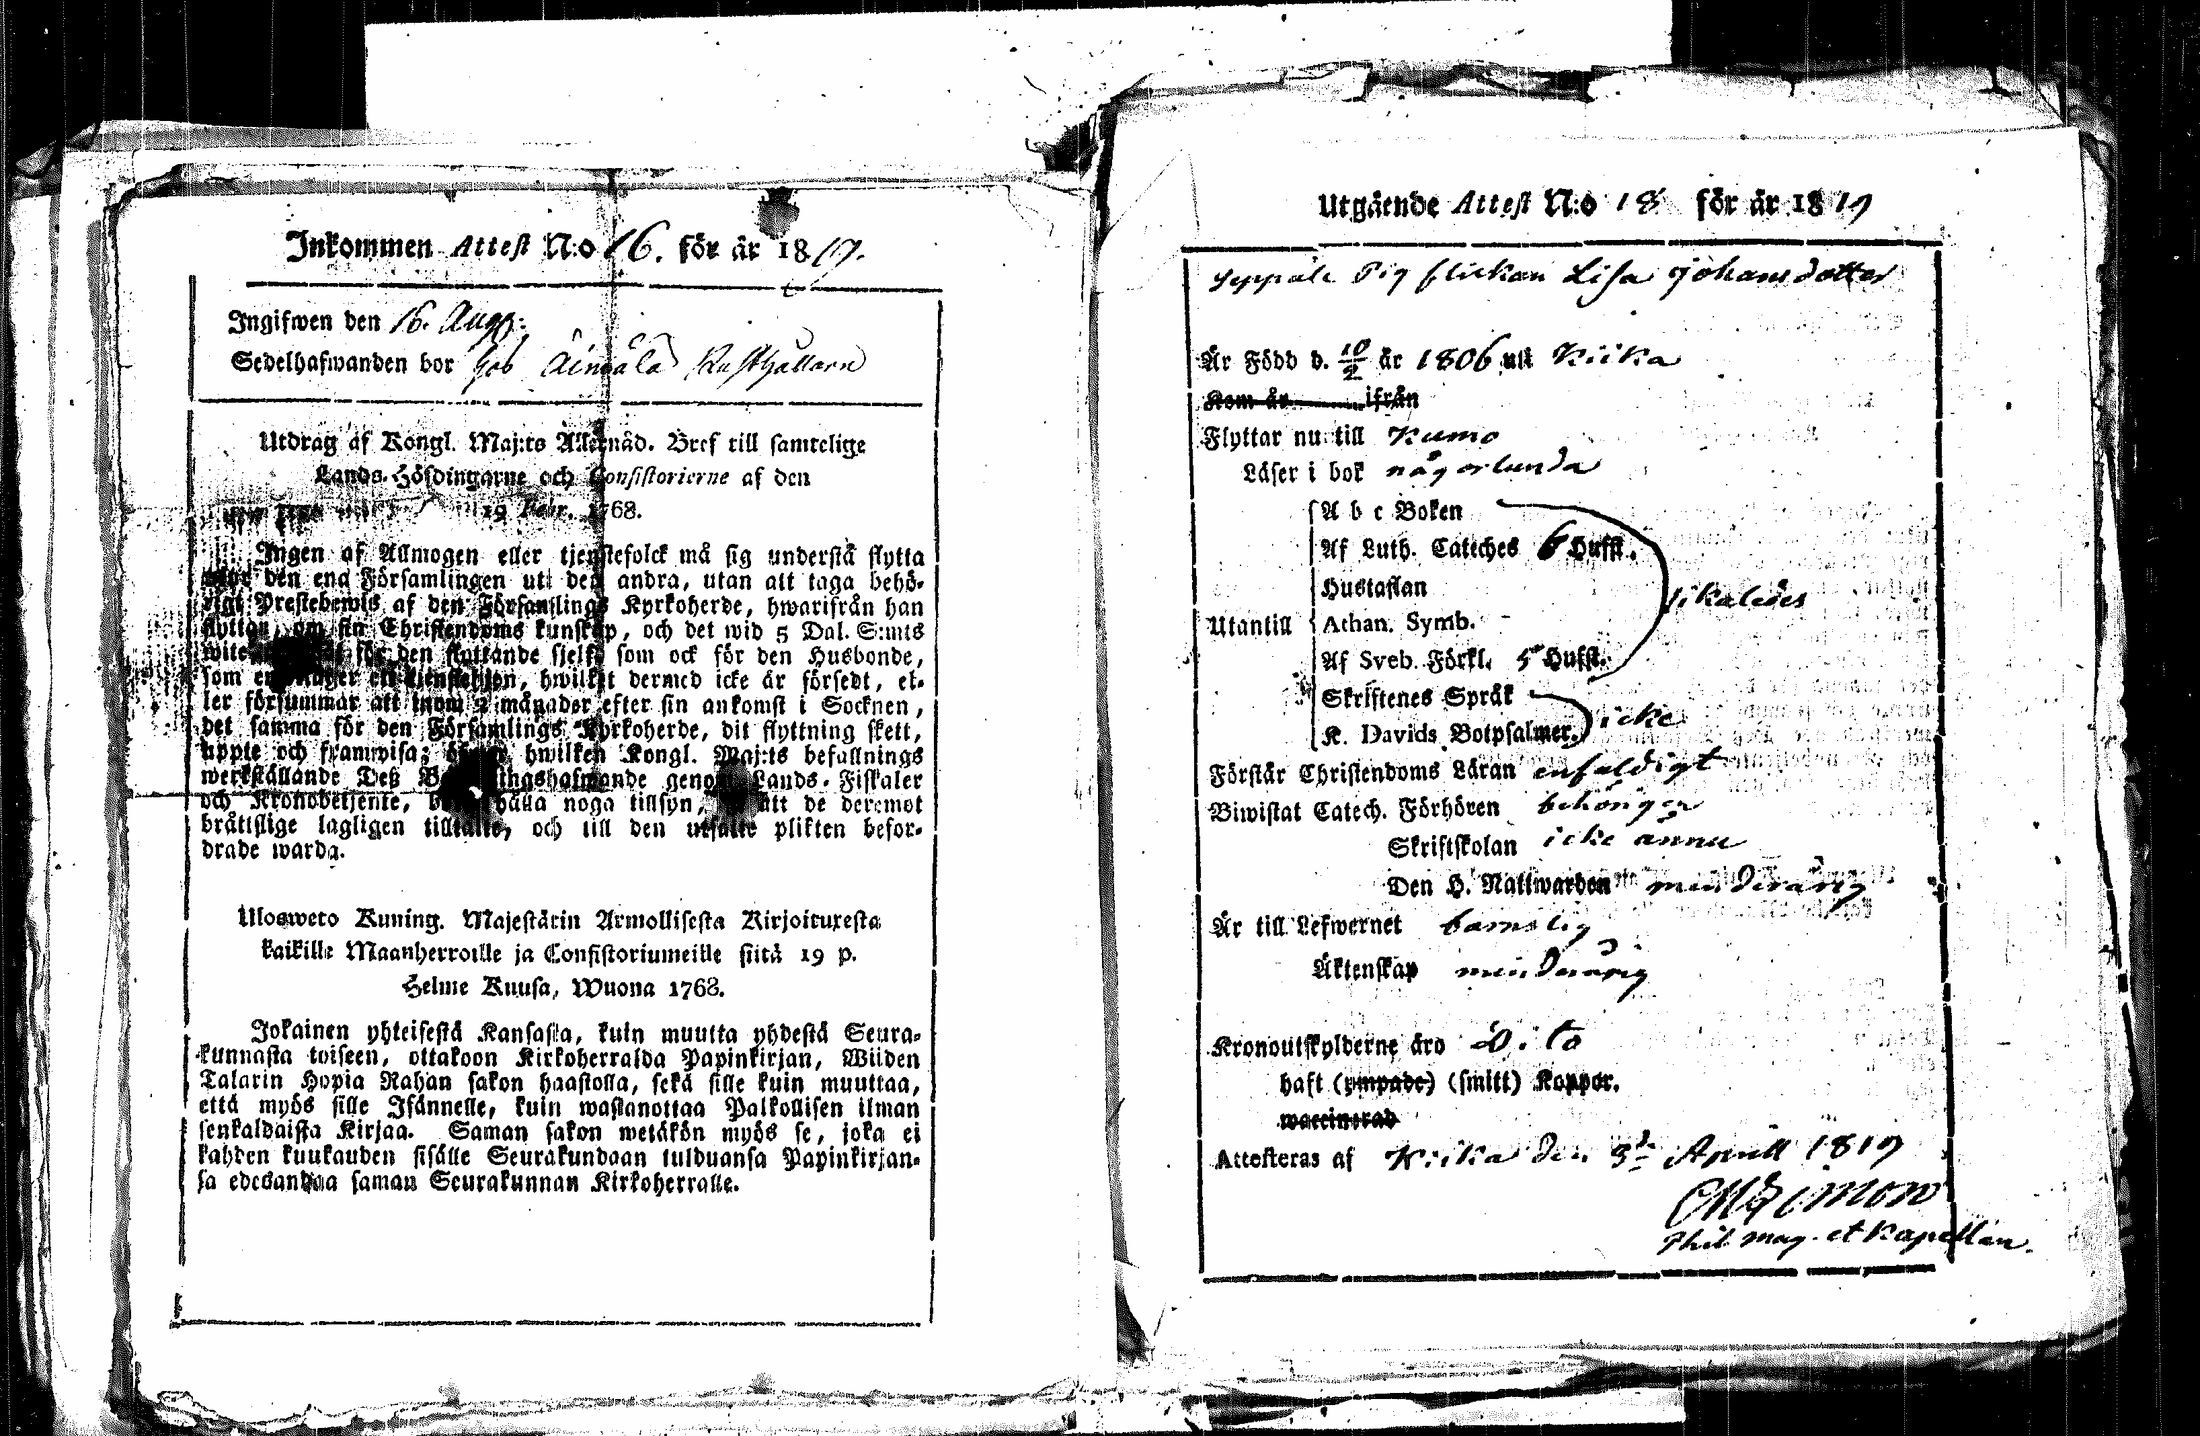 Inkommen Attest N:o 16. för år 1819.
Ingifwen den 16. Aug:
Sedelhafwanden bor hos Äimälä Rusthållarn
Utdrag af Kongl. Maj:ts Allernåd. Bref till samtelige
Lands-Höfdingarne och Consistorierne af den
19 Febr. 1768.
Ingen af Allmogen eller tjenstefolck må sig understå flytta
den ena Församlingen uti den andra, utan att taga behö-
rigt Prestebewis af den Församlings Kyrkoherde, hwarifrån han
flyttar, om sin Christendoms kunskap, och det wid 5 Dal. S:mts
wite för den flyttande sjelf, som ock för den Husbonde,
som en tjenstehjon, hwilket dermed icke är försedt, el-
ler försummar att inom 2 månader efter sin ankomst i Socknen,
det samma för den Församlings Kyrkoherde, dit flyttning skett,
uppte och framwisa; hwilken Kongl. Maj:ts befallnings
werkställande Deß genom Lands-Fiskaler
och Kronobetjente, hålla noga tillsyn, att de deremot
bråttslige lagligen tilltalte, och till den utsatte plikten befor-
drade warda.
Ulosweto Kuning. Majestätin Armollisesta Kirjoituxesta
kaikille Maanherroille ja Consistoriumeille siitä 19 p.
Helme Kuusa, Wuona 1768.
Jokainen yhteisestä Kansasta, kuin muutta yhdestä Seura-
kunnasta toiseen, ottakoon Kirkoherralda Papinkirjan, Wiiden
Talarin Hopia Rahan sakon haastolla, sekä sille kuin muuttaa,
että myös sille Isännelle, kuin wastanottaa Palkollisen ilman
senkaldaista Kirjaa. Saman sakon wetäkön myös se, joka ei
kahden kuukauden sisälle Seurakundaan tulduansa Papinkirjan-
sa edesandaa saman Seurakunnan Kirkoherralle.
Utgående Attest N:o 18 för år 1819
Seppälä Pig flickan Lisa Johansdotter
Är Född d. 10/2 år 1806 uti Kiika
Kom år ifrån
Flyttar nu till Kumo
Läser i bok någorlunda
A b c Boken
Af Luth. Cateches 6 Hufst.
Hustaflan
likaledes
Utantill Athan. Symb.
Af Sveb. Förkl. 5 Hufst.
Skriftenes Språk
icke
K. Davids Botpsalmer.
Förstår Christendoms Läran enfaldigt
Biwistat Catech. Förhören behörigen
Skriftskolan icke ännu
Den H. Nattwarden minderårig
Är till Lefwernet barnslig
Äktenskap minderårig
Kronoutskylderne äro Dito
haft (ympade) (smitt) Koppor.
waccinerad
Attesteras af Kiika den 3d April 1819
Phil. mag. et Kapellan.